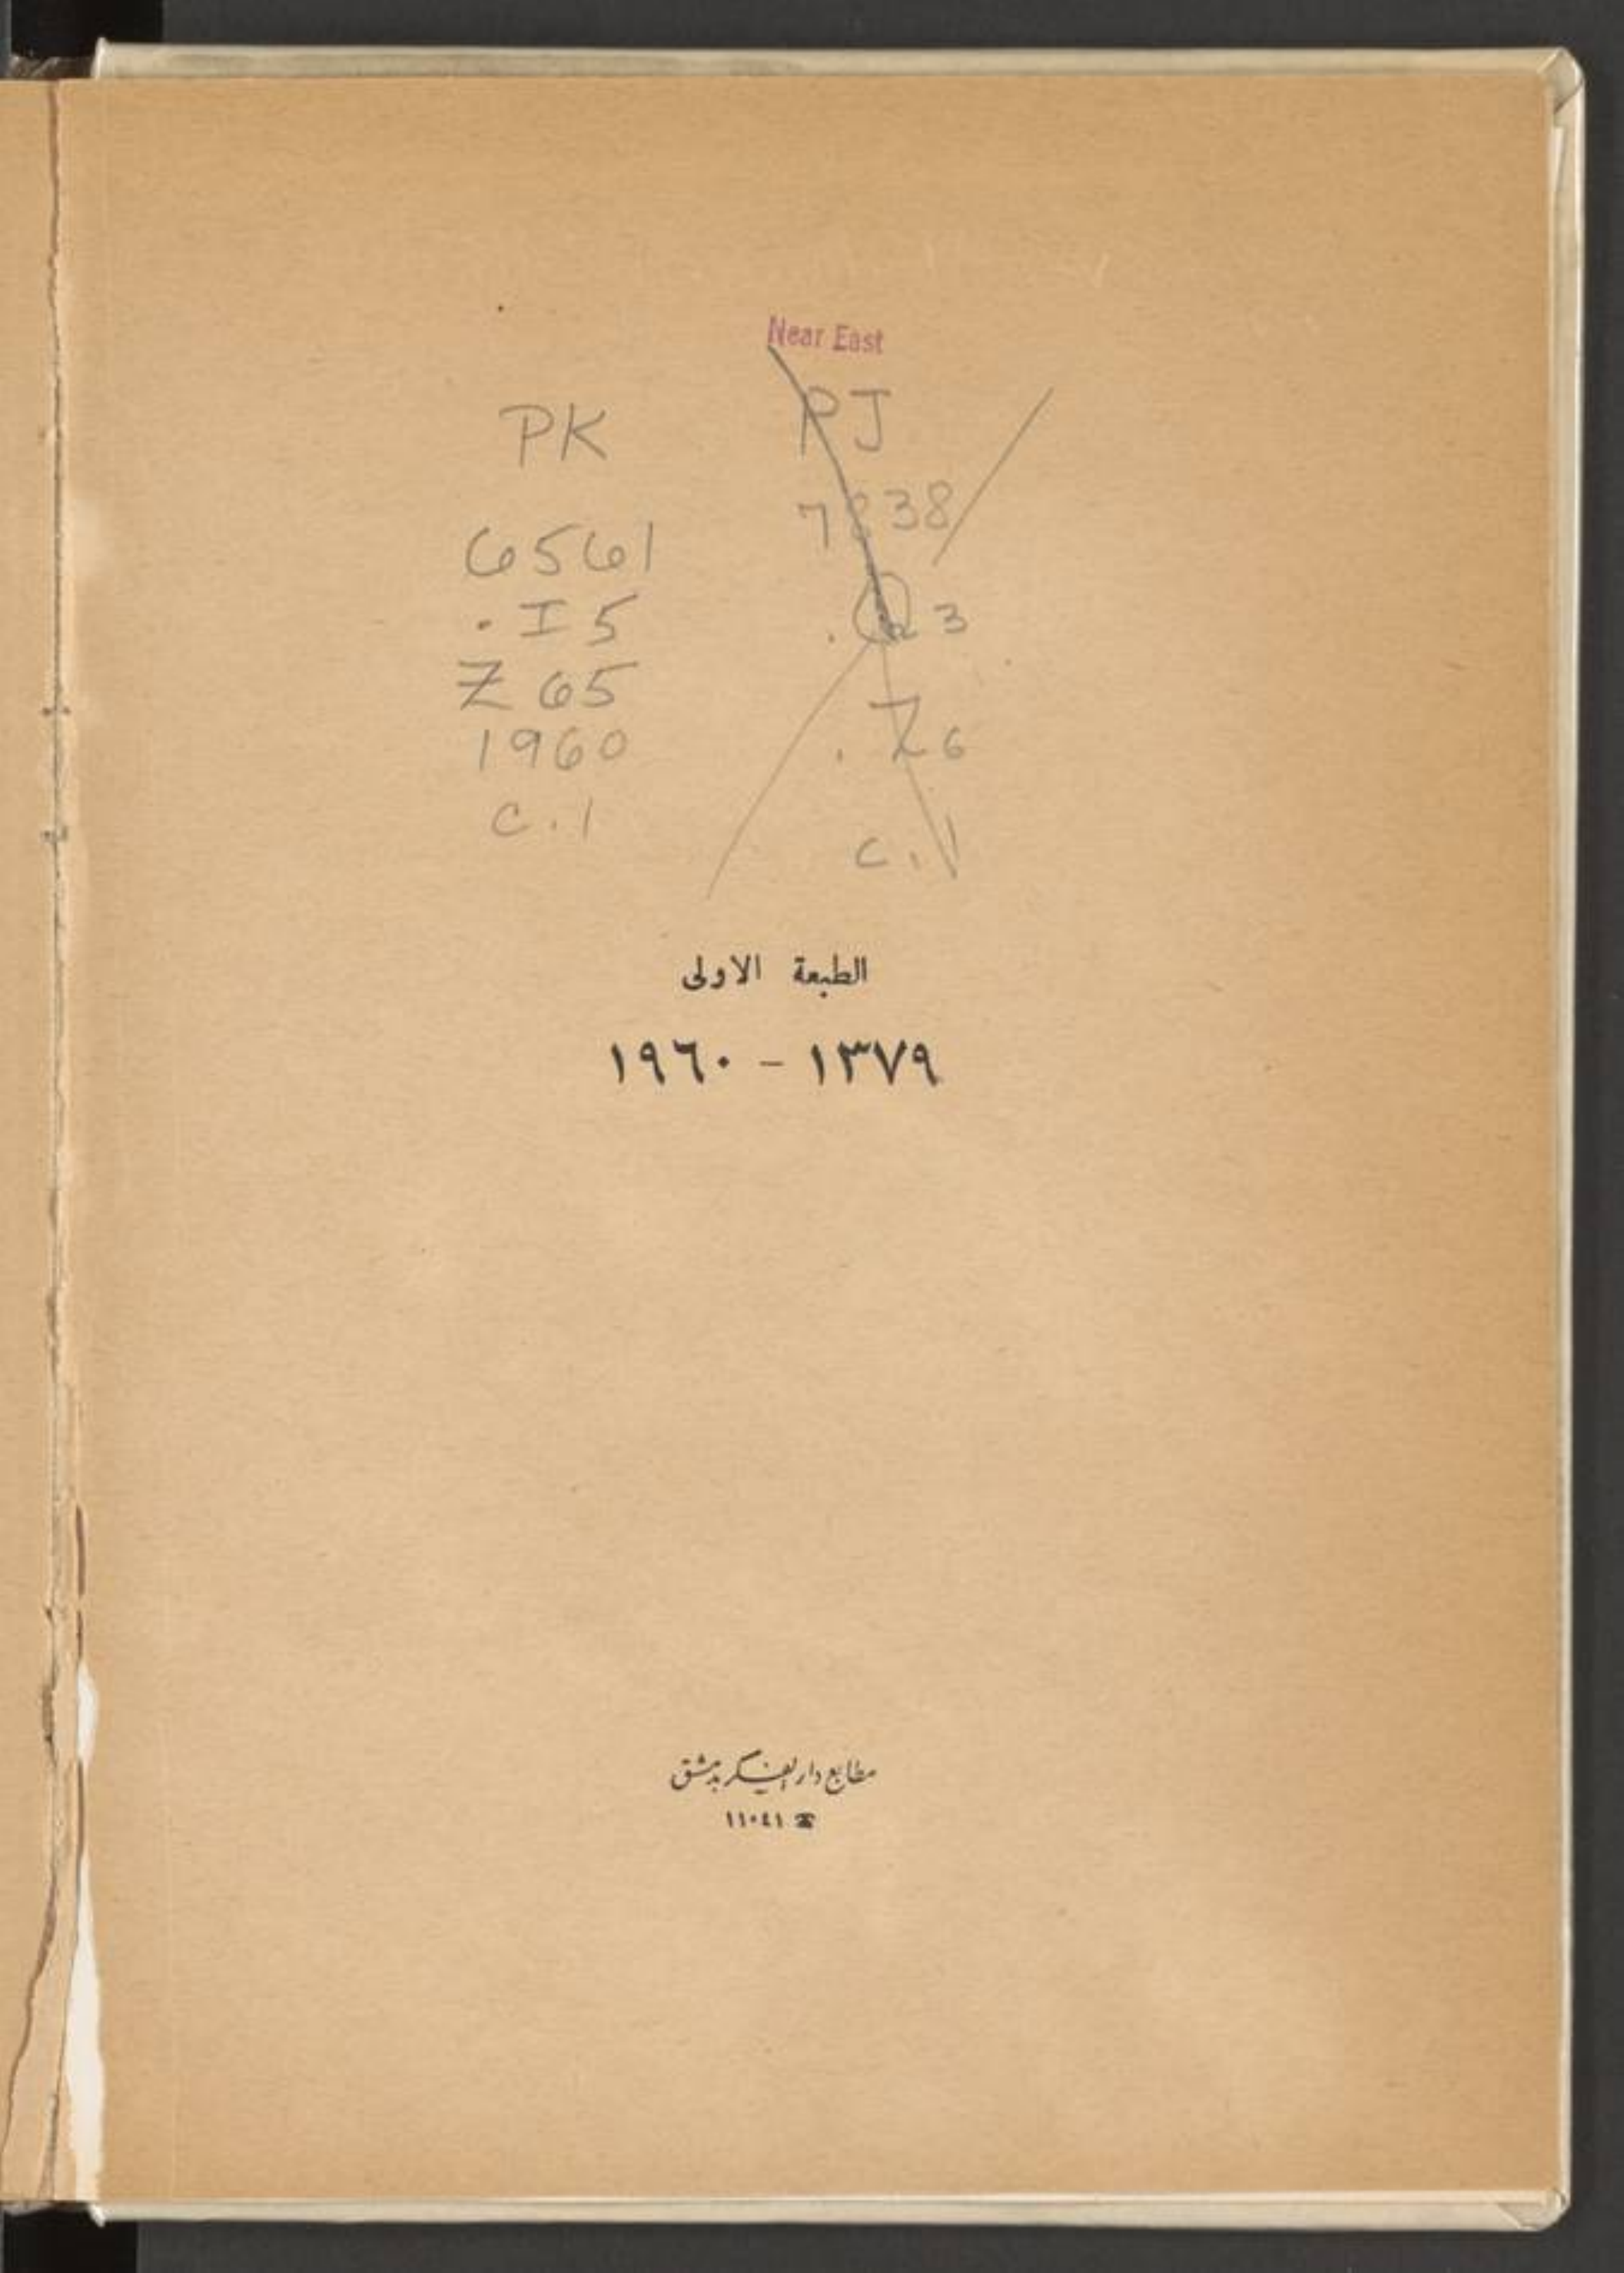 Near East
PK
6561
.I5
Z65
1960
c.1
PJ
7838
.Q3
.Z6
c.1
الطبعة الاولى
١٣٧٩ - ١٩٦٠
مطابع دار الفكر بدمشق
☎ ١١٠٤١